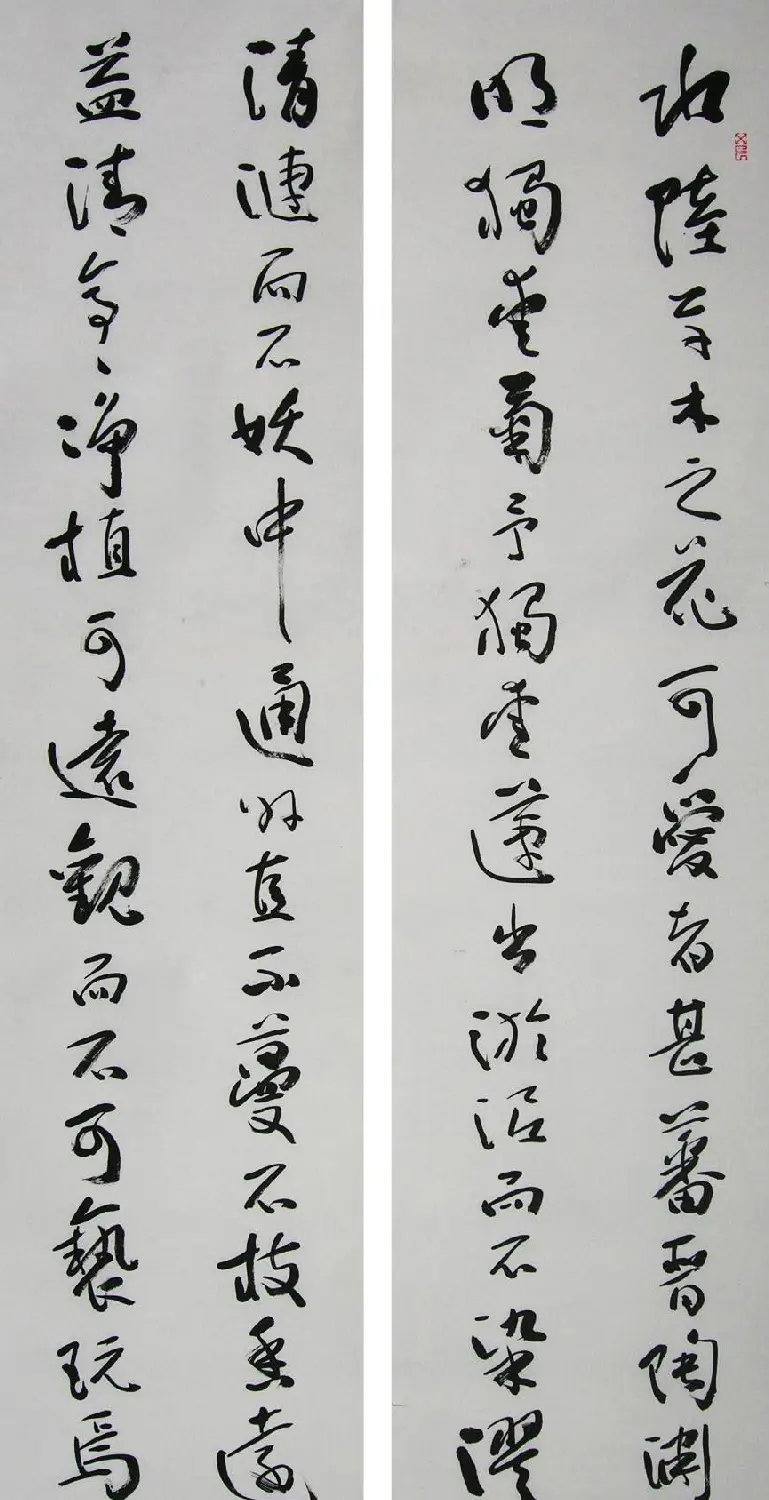 水陸草木之花可愛者甚蕃晉陶淵
明獨愛菊予獨愛蓮出淤泥而不染濯
清漣而不妖中通外直不蔓不枝香遠
益清亭亭净植可遠觀而不可褻玩焉